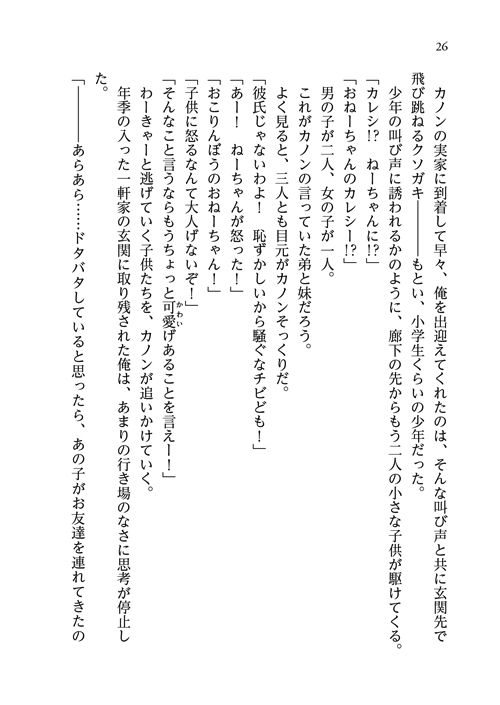 26
　カノンの実家に到着して早々、俺を出迎えてくれたのは、そんな叫び声と共に玄関先で
飛び跳ねるクソガキ――――もとい、小学生くらいの少年だった。
　少年の叫び声に誘われるかのように、廊下の先からもう二人の小さな子供が駆けてくる。
「カレシ!?　ねーちゃんに!?」
「おねーちゃんのカレシー!?」
　男の子が二人、女の子が一人。
　これがカノンの言っていた弟と妹だろう。
　よく見ると、三人とも目元がカノンそっくりだ。
「彼氏じゃないわよ！　恥ずかしいから騒ぐなチビども！」
「あー！　ねーちゃんが怒った！」
「おこりんぼうのおねーちゃん！」
「子供に怒るなんて大人げないぞ！」
「そんなこと言うならもうちょっと可愛かわいげあることを言えー！」
　わーきゃーと逃げていく子供たちを、カノンが追いかけていく。
　年季の入った一軒家の玄関に取り残された俺は、あまりの行き場のなさに思考が停止し
た。
「――――あらあら……ドタバタしていると思ったら、あの子がお友達を連れてきたの